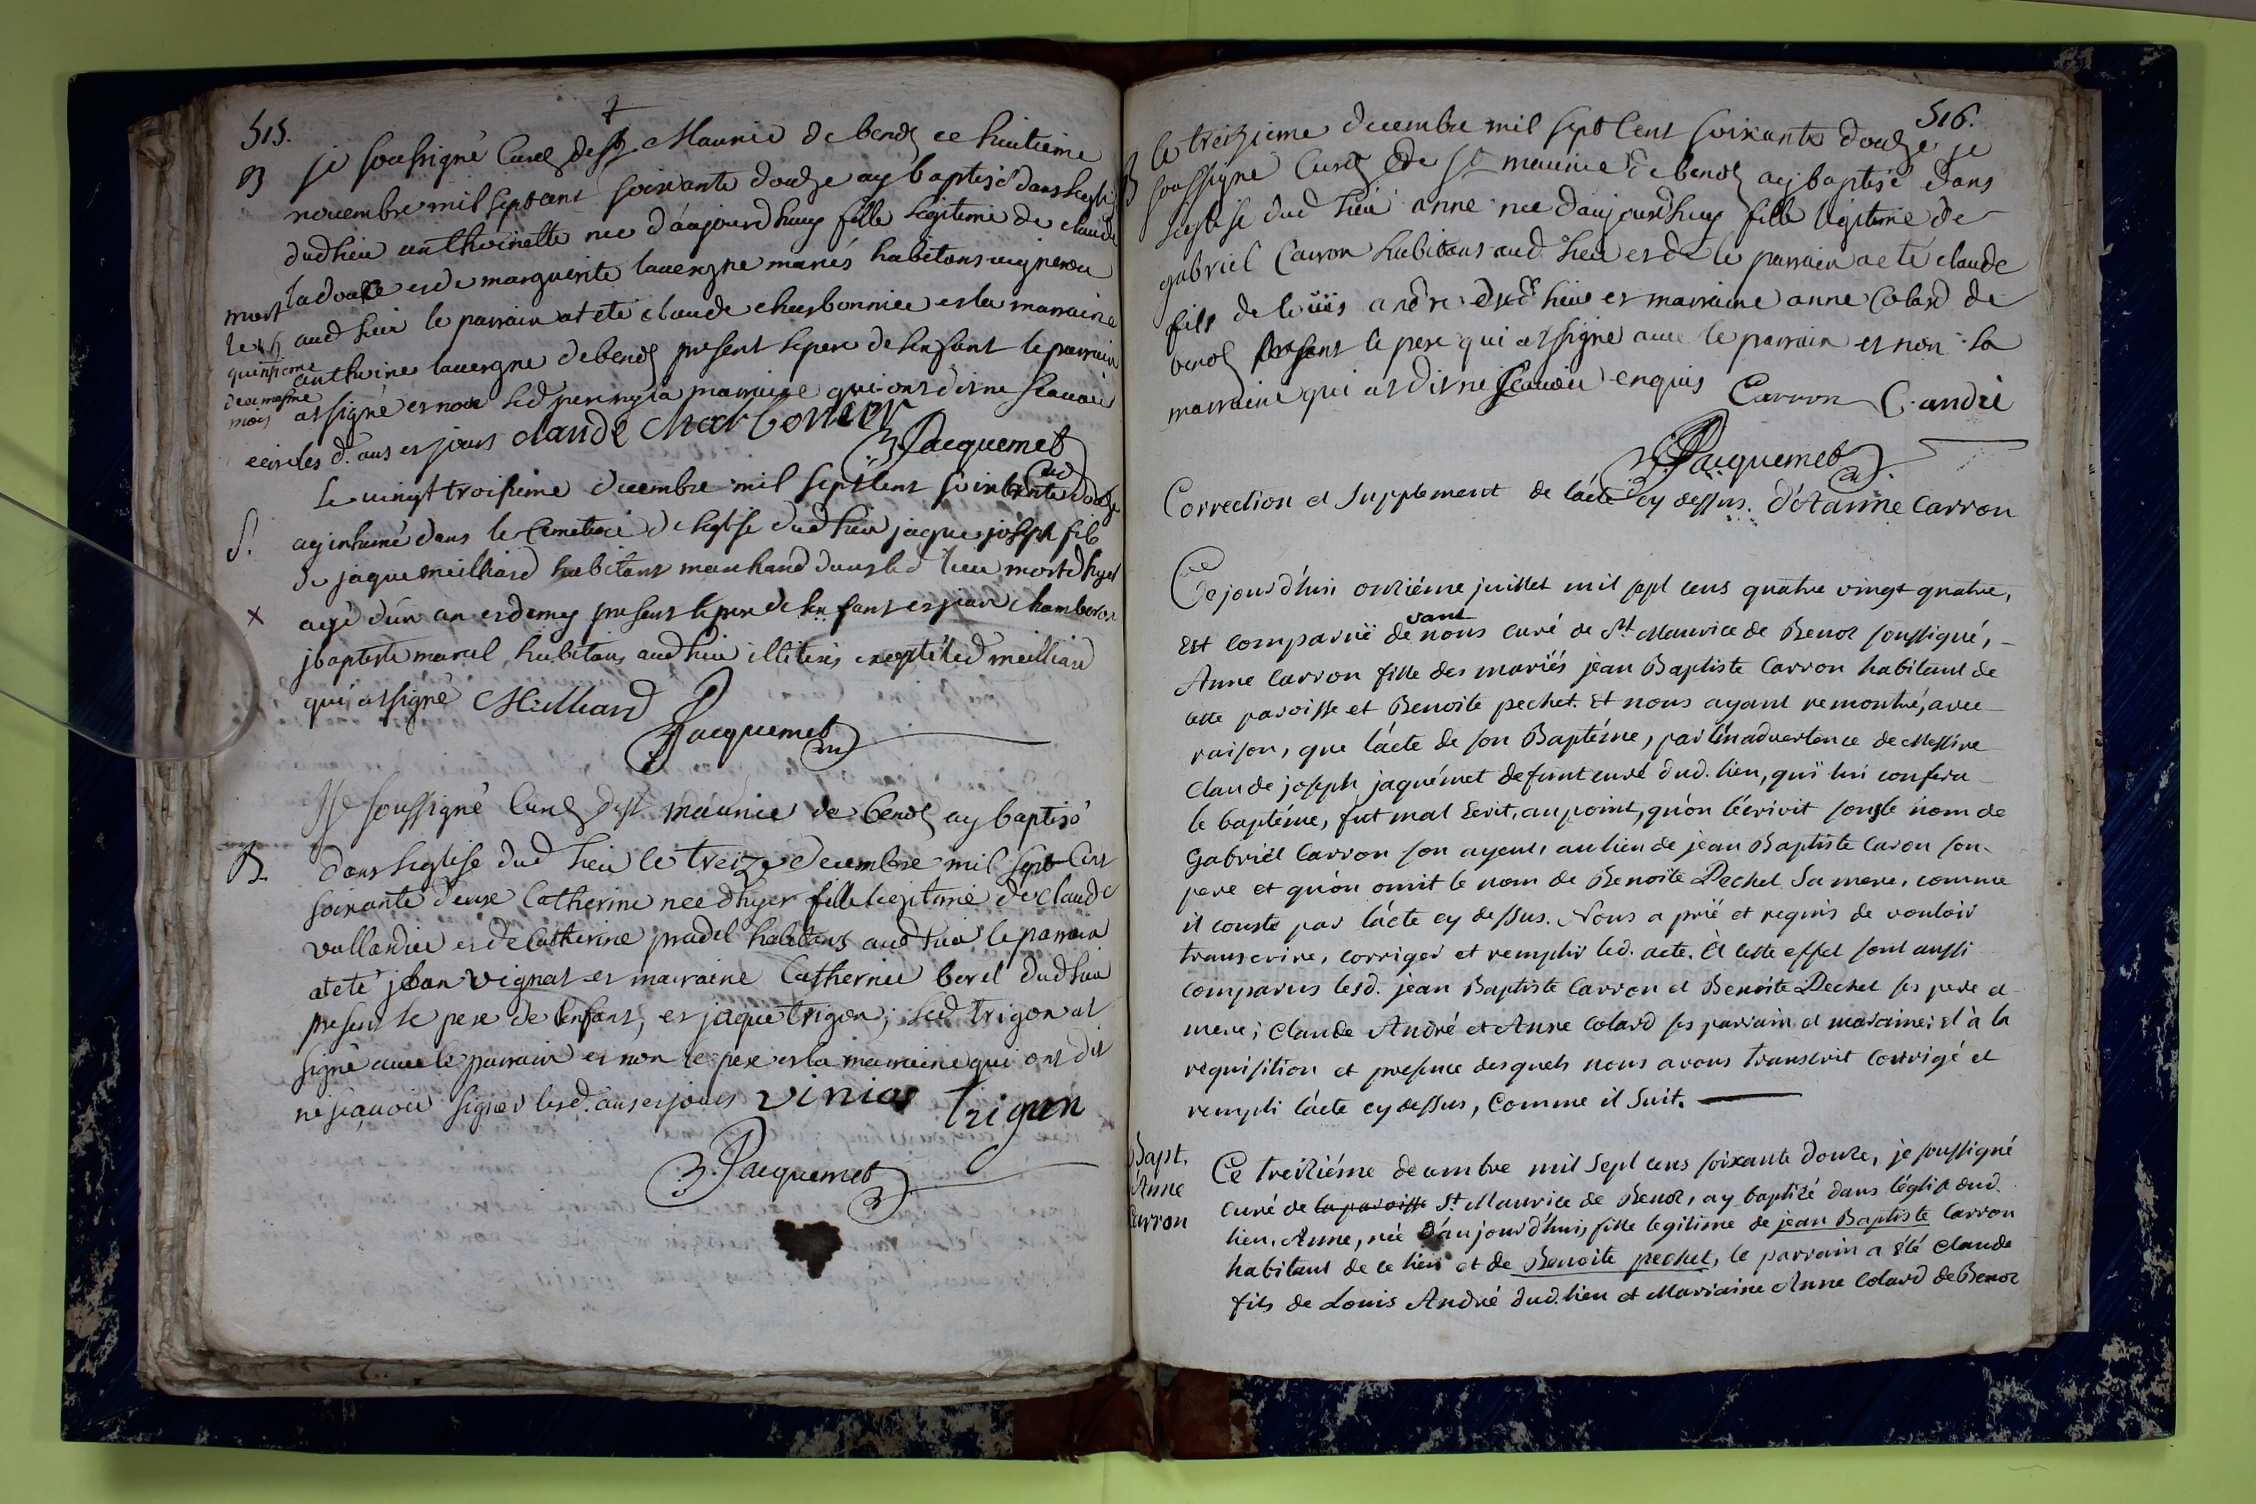 515.
B je soussigné Curé de St Maurice de benod ce huitieme
novembre mil sept cent soixante douze ay baptisé dans leglise
dud lieu anthoinette nee d'aujourdhuy fille legitime de claude
ladouce et de marguerite lavergne mariés habitans vigneron
aud lieu le parrain at eté claude charbonnier et la marraine
anthoine lavergne de benod present le pere de lenfant le parrain
at signé et non led pere ny la marraine qui ont dit ne scavoir
ecrire les d. ans et jours claude charbonier
Jacquemet
mort
le 15
quinsieme
du mesme
mois
Le vingt troisieme decembre mil sept cent soixante douze
S. ay inhumé dans le Cimetiere de leglise dud lieu jaque joseph fils
de jaque meilliard habitant marchand dans led lieu mort dhyer
x agé d'un an et demy present le pere de lenfant et jean chambe
jbaptiste marcel habitans aud lieu illiterés excepté led meilliard
qui at signé Meilliard
Jacquemet
Je soussigné Curé de st maurice de benod ay baptisé
B. dans leglise dud lieu le treize decembre mil sept Cent
soixante deuze Catherine nee dhyer fille legitime de claude
vallandier et de Catherine pradel habitans aud lieu le parrain
at eté jean vignat et marraine Catherine borel dud lieu
present le pere de lenfant, et jaque trigon; led trigon at
signé avec le parrain et non le pere et la marraine qui ont dit
ne scavoir signer lesd. ans et jours vinias trigon
Jacquemet
516.
B le treizieme decembre mil sept Cent soixante douze je
soussigné Curé de St maurice de benod ay baptisé dans
leglise dud lieu anne nee d'aujourdhuy fille legitime de
gabriel Carron habitans aud lieu et de le parrain at eté claude
fils de loüis andré dud lieu et marraine anne Colard de
benod present le pere qui at signé avec le parrain et non la
marraine qui at dit ne scavoir enquis Carron C. andré
Jacquemet
Correction et Supplement de l'acte cy dessus. d'Anne Carron
Ce jourd'hui onziéme juillet mil sept cens quatre vingt quatre,
Est comparuë devant nous curé de St Maurice de Benoz soussigné,
Anne Carron fille des mariés jean Baptiste Carron habitant de
cette paroisse et Benoite pechet. Et nous ayant remontré, avec
raison, que l'acte de son Baptéme, par l'inadvertence de Messire
Claude joseph jaquémet defunt curé dud. lieu, qui lui confera
le baptéme, fut mal Ecrit, au point, qu'on l'écrivit sous le nom de
Gabriël Carron son ayeul, au lieu de jean Baptiste Caron son
pere et qu'on omit le nom de Benoite Pechet Sa mere, comme
il conste par l'acte cy dessus. Nous a prié et requis de vouloir
transcrire, corriger et remplir led. acte. A cette effet sont aussi
comparus lesd. jean Baptiste Carron et Benoite Pechet ses pere et
mere; Claude André et Anne Colard ses parrain et maraine; et à la
requisition et presence desquels nous avons transcrit corrigé et
rempli l'acte cy dessus, Comme il Suit.
Bapt.
Anne
Carron
Ce treiziéme decembre mil Sept cens soixante douze, je soussigné
curé de la paroisse St Maurice de Benoz, ay baptizé dans l'église dud.
lieu, Anne, née d'aujourd'hui, fille legitime de jean Baptiste Carron
habitant de ce lieu et de Benoite pechet, le parrain a été Claude
fils de Louis André dud. lieu et Marraine Anne Colard de Benoz